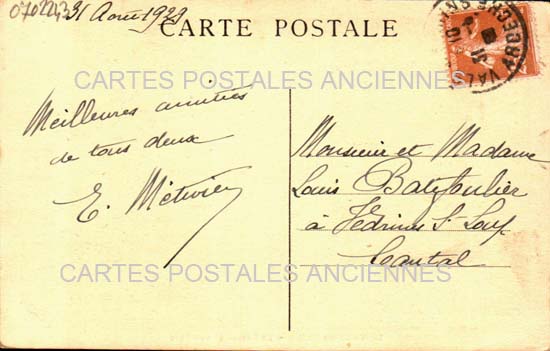 0702243
31 Août 1923
CARTE POSTALE
VALS
ARDECHE
CARTES POSTALES ANCIENNES
Meilleures amitiés
de tous deux
E. Métivier
Monsieur et Madame
Louis Batifoulier
à Védrines St Loup
Cantal
CARTES POSTALES ANCIENNES